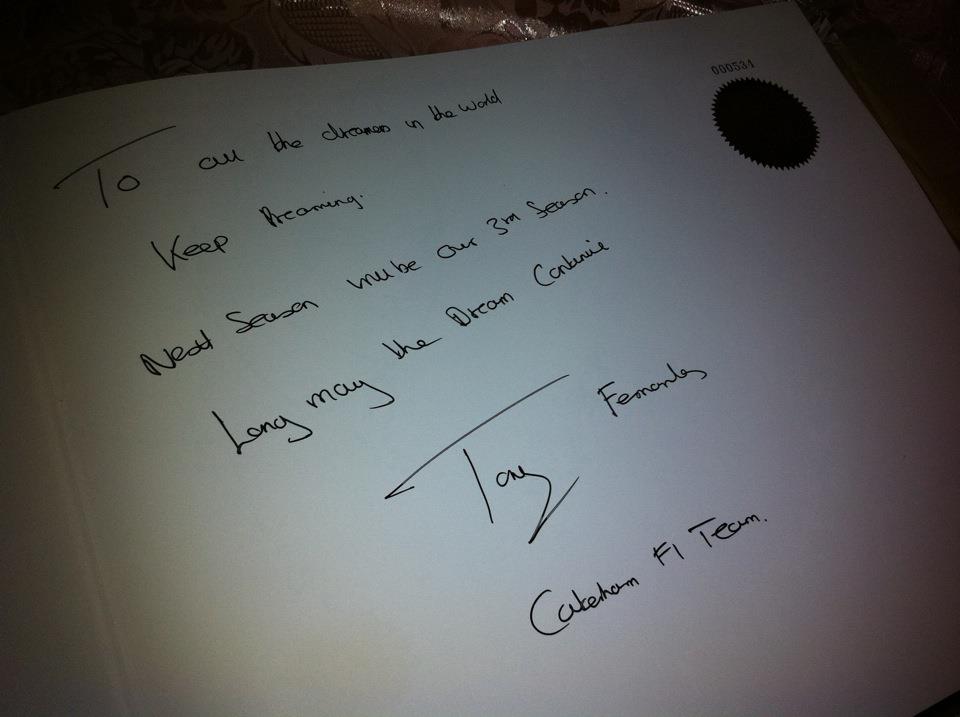 000531
To all the dreamers in the world
Keep Dreaming.
Next Season will be our 3rd Season.
Long may the Dream Continue
Tony Fernandes
Caterham F1 Team.